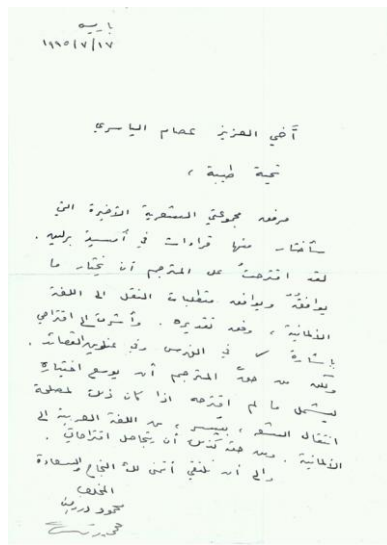 باريس
١٩٩٥/٧/١٧
أخي العزيز عصام الياسري
تحية طيبة ،
مرفق مجموعتي الشعرية الأخيرة التي
سأختار منها قراءات في أمسية برلين .
لقد اقترحتُ على المترجم أن يختار ما
يوافقُهُ ويوافق متطلبات النقل الى اللغة
الألمانية ، وفق تقديره . وأشرت الى اقتراحي
بإشارة في الفهرس وفي عناوين القصائد .
ولكن من حقّ المترجم أن يوسع اختياره
ليشمل ما لم اقترحه اذا كان ذلك لمصلحة
انتقال الشعر ، بيُسر ، من اللغة العربية الى
الألمانية . ومن حقه كذلك أن يتجاهل اقتراحاتي .
والى أن نلتقي أتمنى لك النجاح والسعادة
المخلص
محمود درويش